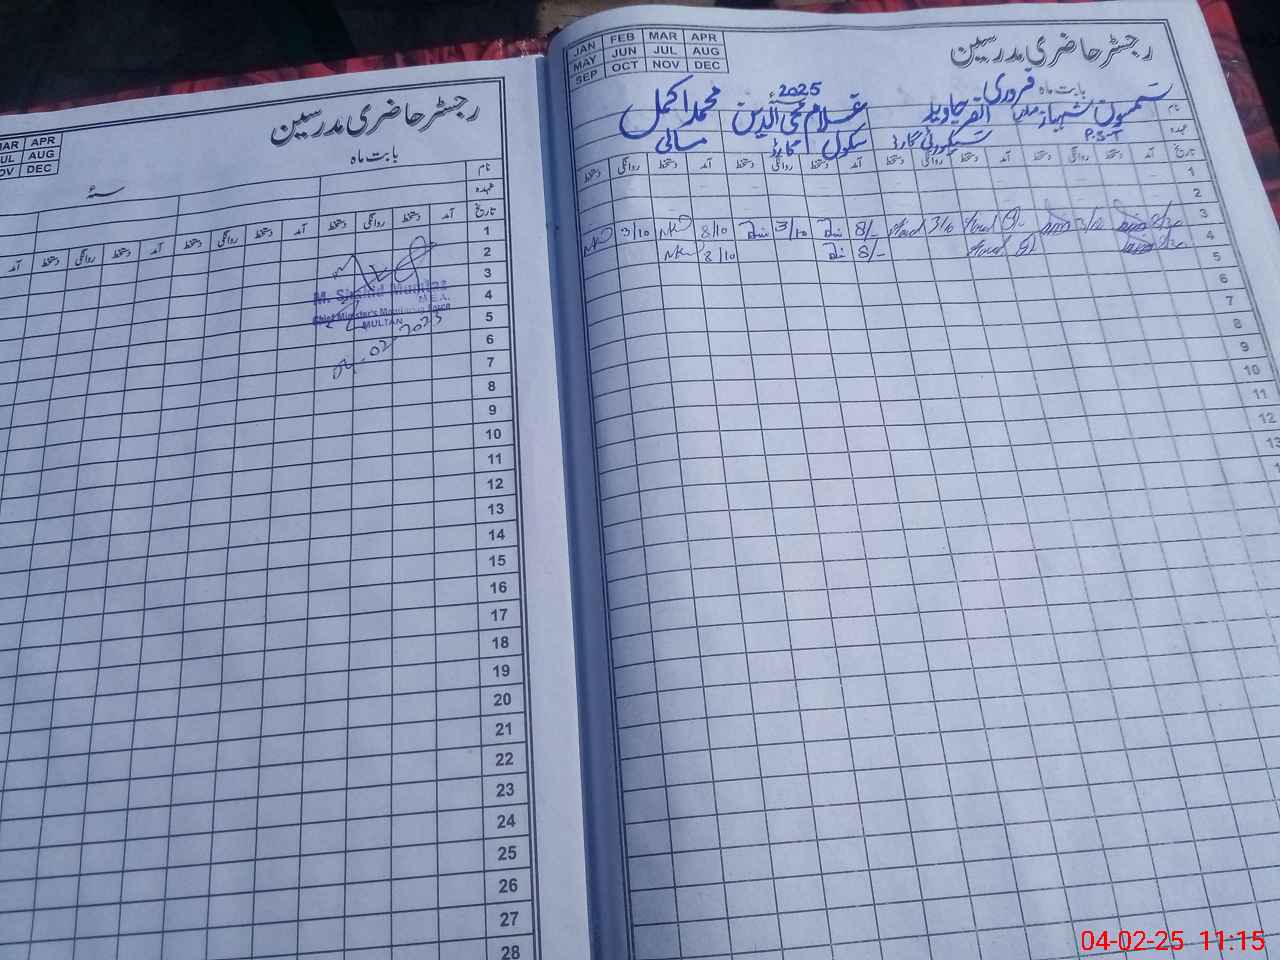 رجسٹر حاضری مدرسین
بابت ماہ
سنہ
MAR APR
JUL AUG
NOV DEC
نام
عہدہ
تاریخ
آمد دستخط روانگی دستخط آمد دستخط روانگی دستخط آمد دستخط روانگی دستخط آمد
1
2
3
4
5
6
7
8
9
10
11
12
13
14
15
16
17
18
19
20
21
22
23
24
25
26
27
28
M. Shahid Mumtaz
M.E.A.
Chief Minister's Monitoring Force
MULTAN
04-02-2025
رجسٹر حاضری مدرسین
JAN FEB MAR APR
MAY JUN JUL AUG
SEP OCT NOV DEC
بابت ماہ فروری 2025
نام شہباز جاوید غلام محی الدین محمد اکمل
عہدہ P.S.T سیکورٹی گارڈ سکول گارڈ مالی
تاریخ آمد دستخط روانگی دستخط آمد دستخط روانگی دستخط آمد دستخط روانگی دستخط آمد دستخط روانگی دستخط
1
2
3 8/30 3/10 8/- 3/10 8/10 3/10
4 8/30 8/- 8/10
5
6
7
8
9
10
11
12
13
04-02-25 11:15